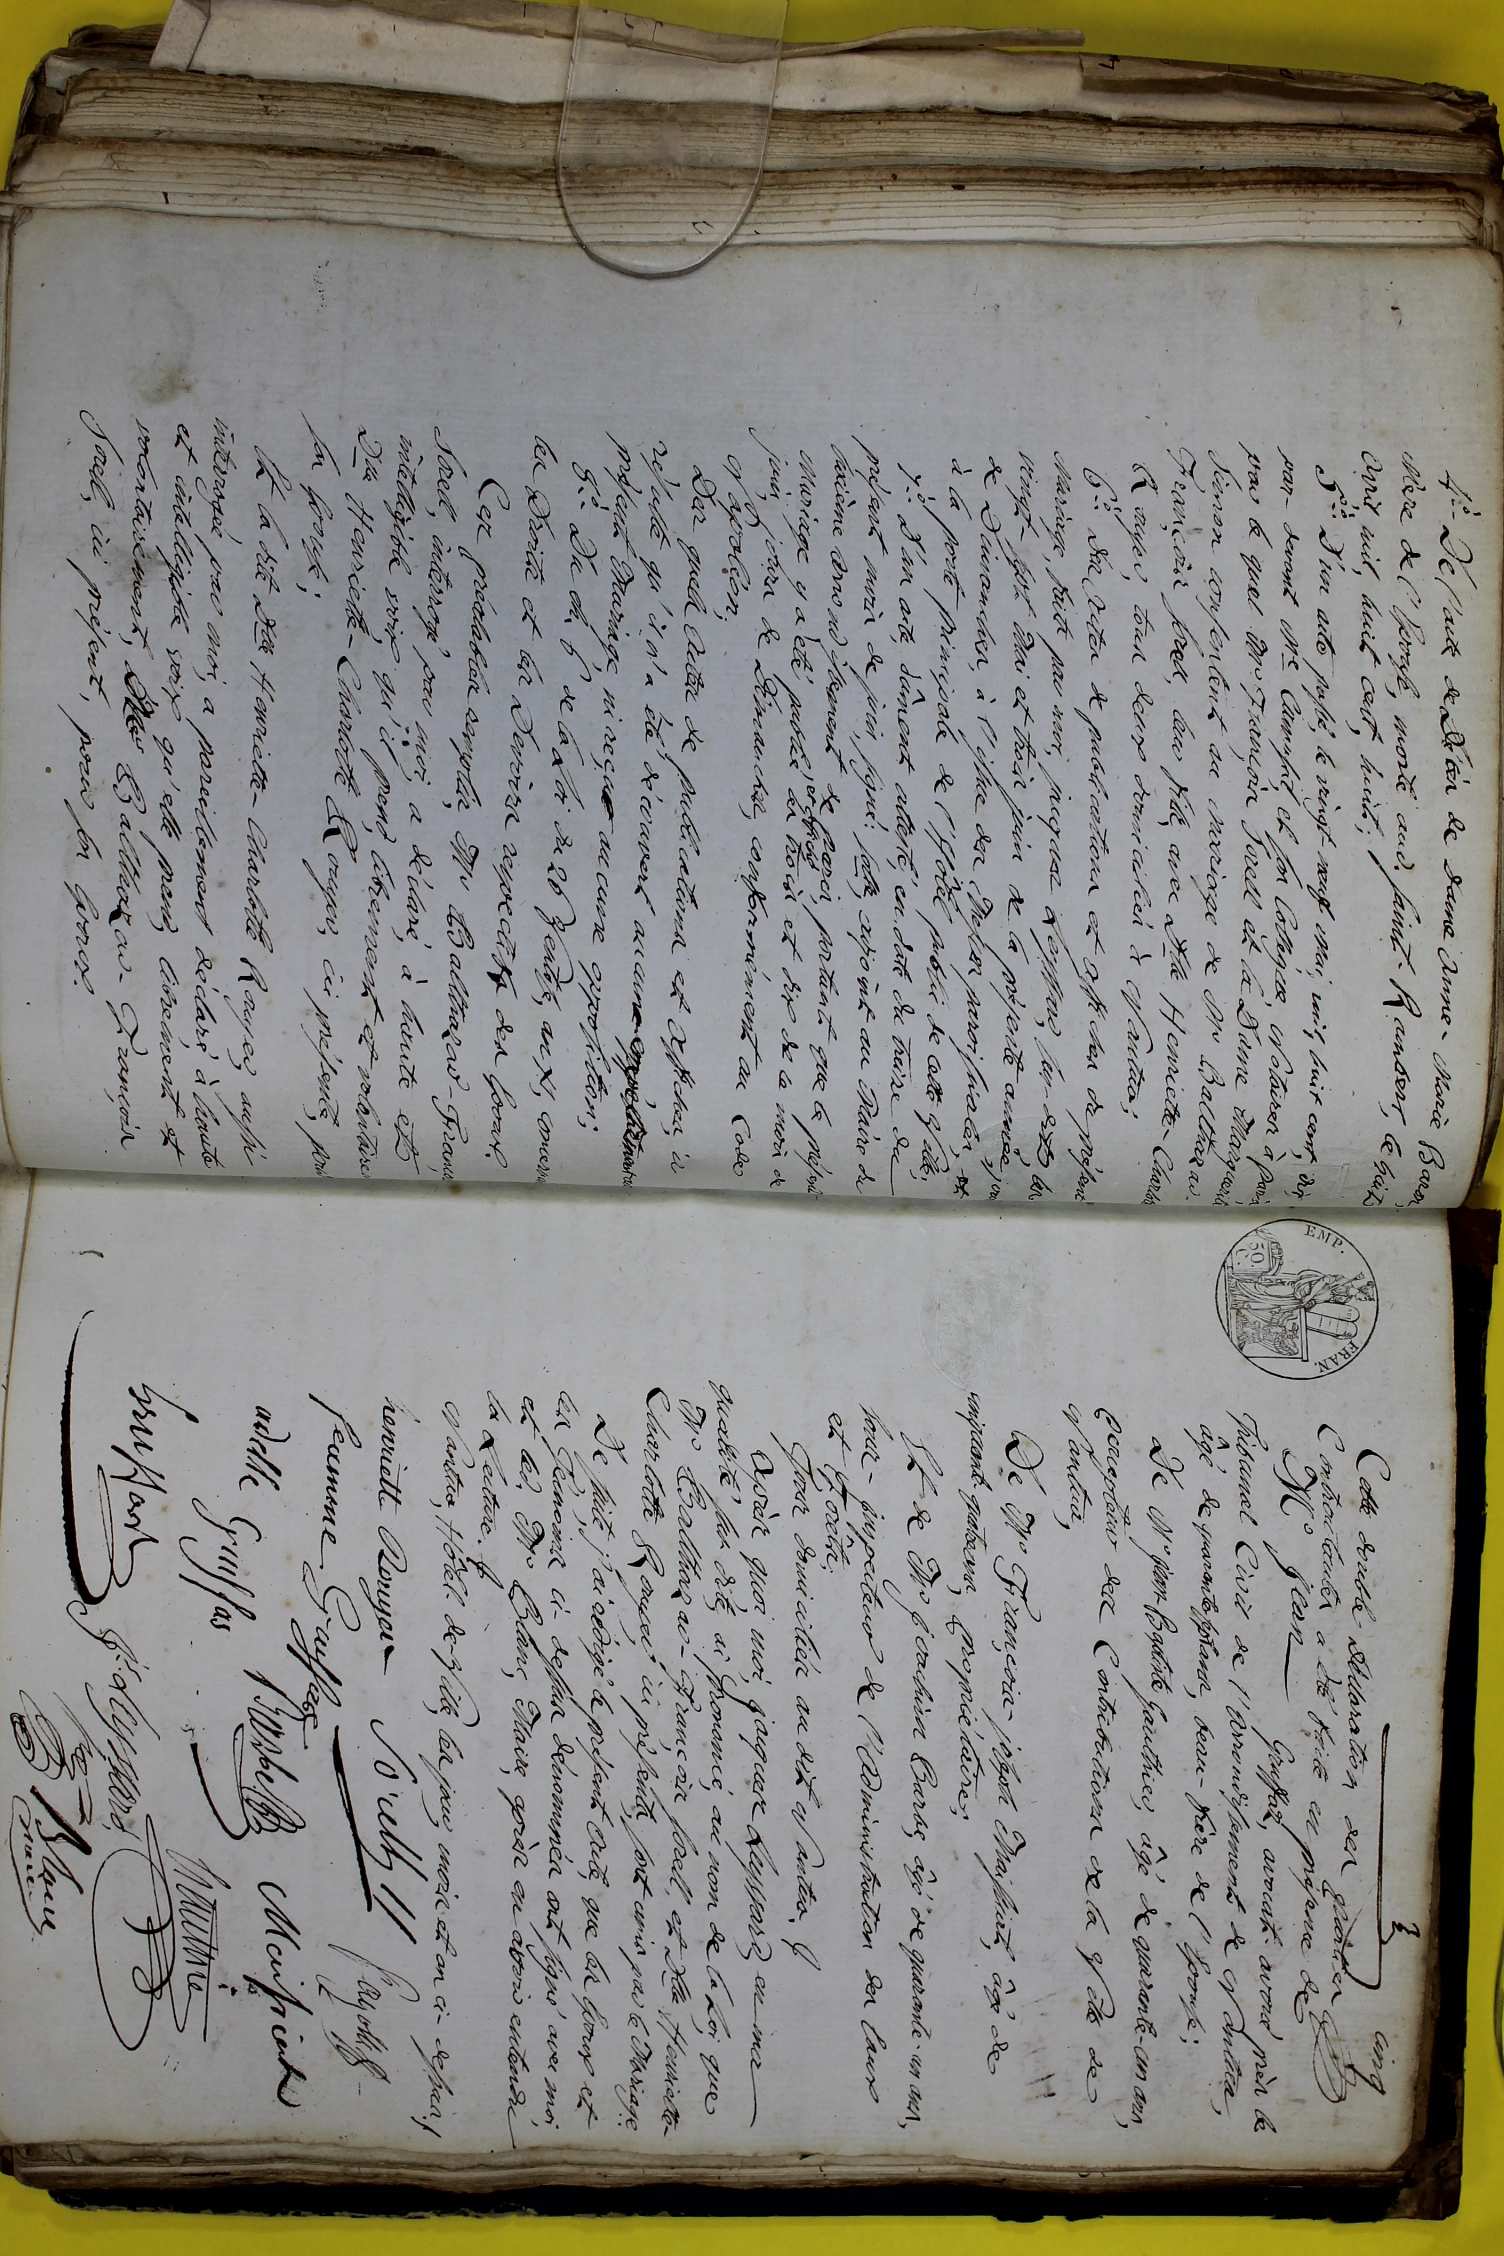 4.° De l'acte de décès de Dame Anne-Marie Baron,
Mère de l'Epouse, morte aud. Saint-Rambert, le huit
Avril mil, huit cent, huit;
5.° D'un acte passé, le vingt neuf Mai, mil, huit cent, dix,
par-devant M.e et son Collègue, Notaires à Paris,
par le quel M.r François Sorell et la Dame Marguerite
Simon consentent au mariage de M.r Balthazar-
François Sorel, leur fils, avec D.lle Henriette-Charlotte
Rouyer, tous deux domiciliés à Nantua;
6.° Des actes de publications et affiches du présent
Mariage, faite par moi, Jacques Leyssard, susdit, les
vingt-sept Mai et trois juin de la présente année, jours
de Dimanches, à l'issue des Messes paroissiales, et
à la porte principale de l'Hôtel public de cette Ville;
7.° D'un acte, dûment attesté, en date du treize du
présent mois de juin, signé: , adjoint au Maire du
arrondissement de Paris, portant que le présent
Mariage y a été publié et affiché les trois et dix de ce mois de
juin, jours de Dimanches, conformément au Code
Napoléon;
Des quels Actes de publications et Affiches, il
résulte qu'il n'a été découvert aucun
présent Mariage ni reçu aucune opposition;
8.° Du ch. 6 de la Loi du 20 Ventôse, an XI, concernant
les Droits et les Devoirs respectifs des Epoux;
Ces préalables remplis, M.r Balthazar-François
Sorel, interrogé par moi, a déclaré, à haute et
intelligible voix, qu'il prend, librement et volontairement,
D.lle Henriette-Charlotte Rouyer, ici présente, pour
son Epouse;
Et la dite D.lle Henriette-Charlotte Rouyer, aussi
interrogée par moi, a pareillement déclaré, à haute
et intelligible voix, qu'elle prend, librement et
volontairement, M.r Balthazar-François
Sorel, ici présent, pour son Epoux.
EMP. FRAN.
50 C.
cinq
Cette double déclaration des
Contractants a été faite en présence de
M.r Jean Guiffas, avocat-avoué près le
Tribunal Civil de l'Arrondissement de Nantua,
âgé de quarante-sept ans, beau-frère de l'Epouse;
De M.r Jean-Baptiste Gauthier, âgé de quarante-un ans,
percepteur des Contributions de la Ville de
Nantua;
De M.r François-joseph Maissiat, âgé de
cinquante quatre ans, Propriétaire;
Et de M.r Joachim Barbe, âgé de quarante-un ans,
sous-inspecteur de l'Administration des Eaux
et Forêts;
Tous domiciliés au dit Nantua.
Après quoi moi, Jacques Leyssard, en ma
qualité, susdite, ai prononcé, au nom de la Loi, que
M.r Balthazar-François Sorell, et D.lle Henriette-
Charlotte Rouyer, ici présents, sont unis par le Mariage.
De suite, j'ai rédigé le présent Acte, que les Epoux et
les Témoins ci-dessus dénommés ont signé avec moi
et led. M.r Blanc, Maire, après en avoir entendu
la Lecture.
Nantua, Hôtel-de-Ville, les jour, mois et an ci-dessus.
henriette Rouyer Sorell
femme Guiffas
adelle Guiffas Barbe Maissiat
Gauthier
J.s Leyssard,
adj.t
Blanc
maire